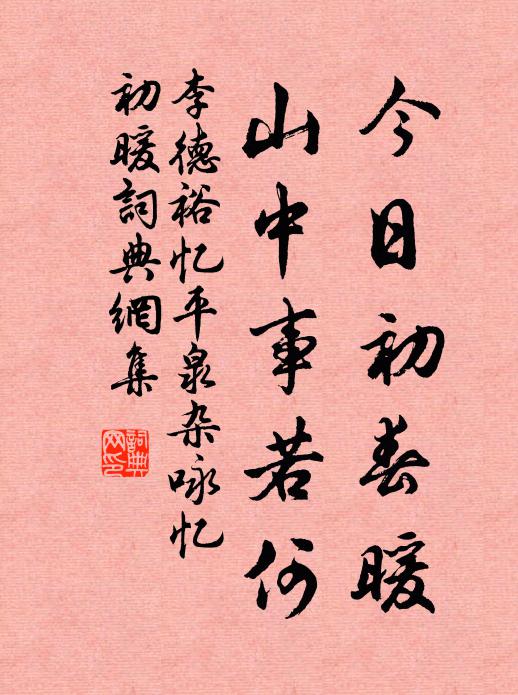 今日初春暖
山中事若何
李德裕忆平泉杂咏忆
初暖词典網集
詞典
网印